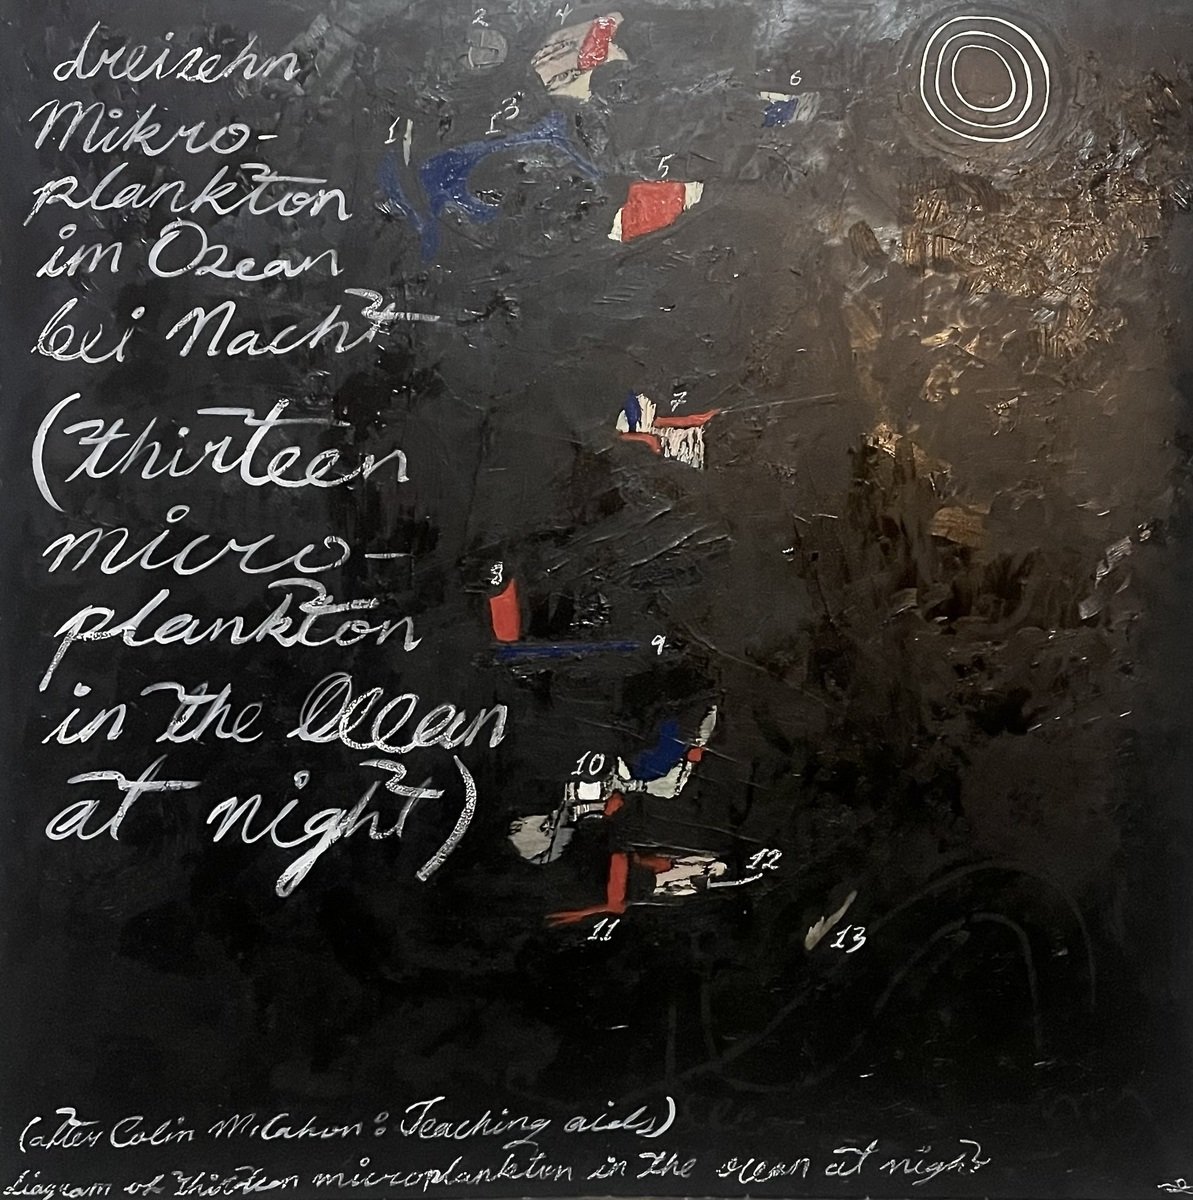 dreizehn
Mikro-
plankton
im Ozean
bei Nacht
(thirteen
micro-
plankton
in the Ocean
at night)
2
4
6
1
3
5
7
8
9
10
12
11
13
(after Colin McCahon: Teaching aids)
diagram of thirteen microplankton in the ocean at night